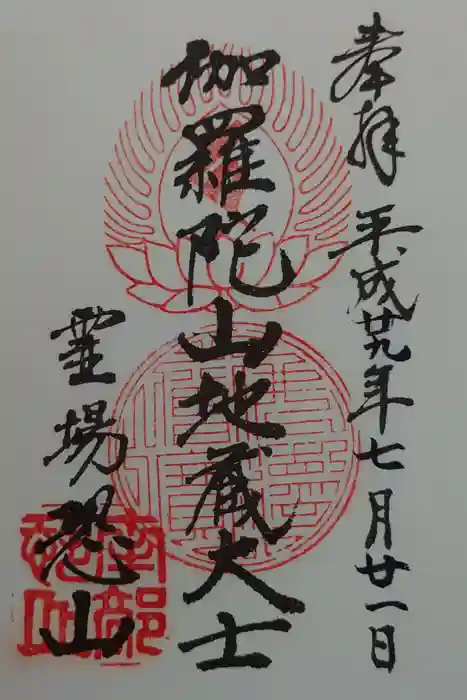 奉拝 平成廿九年七月廿一日
伽羅陀山地蔵大士
霊場恐山
南部